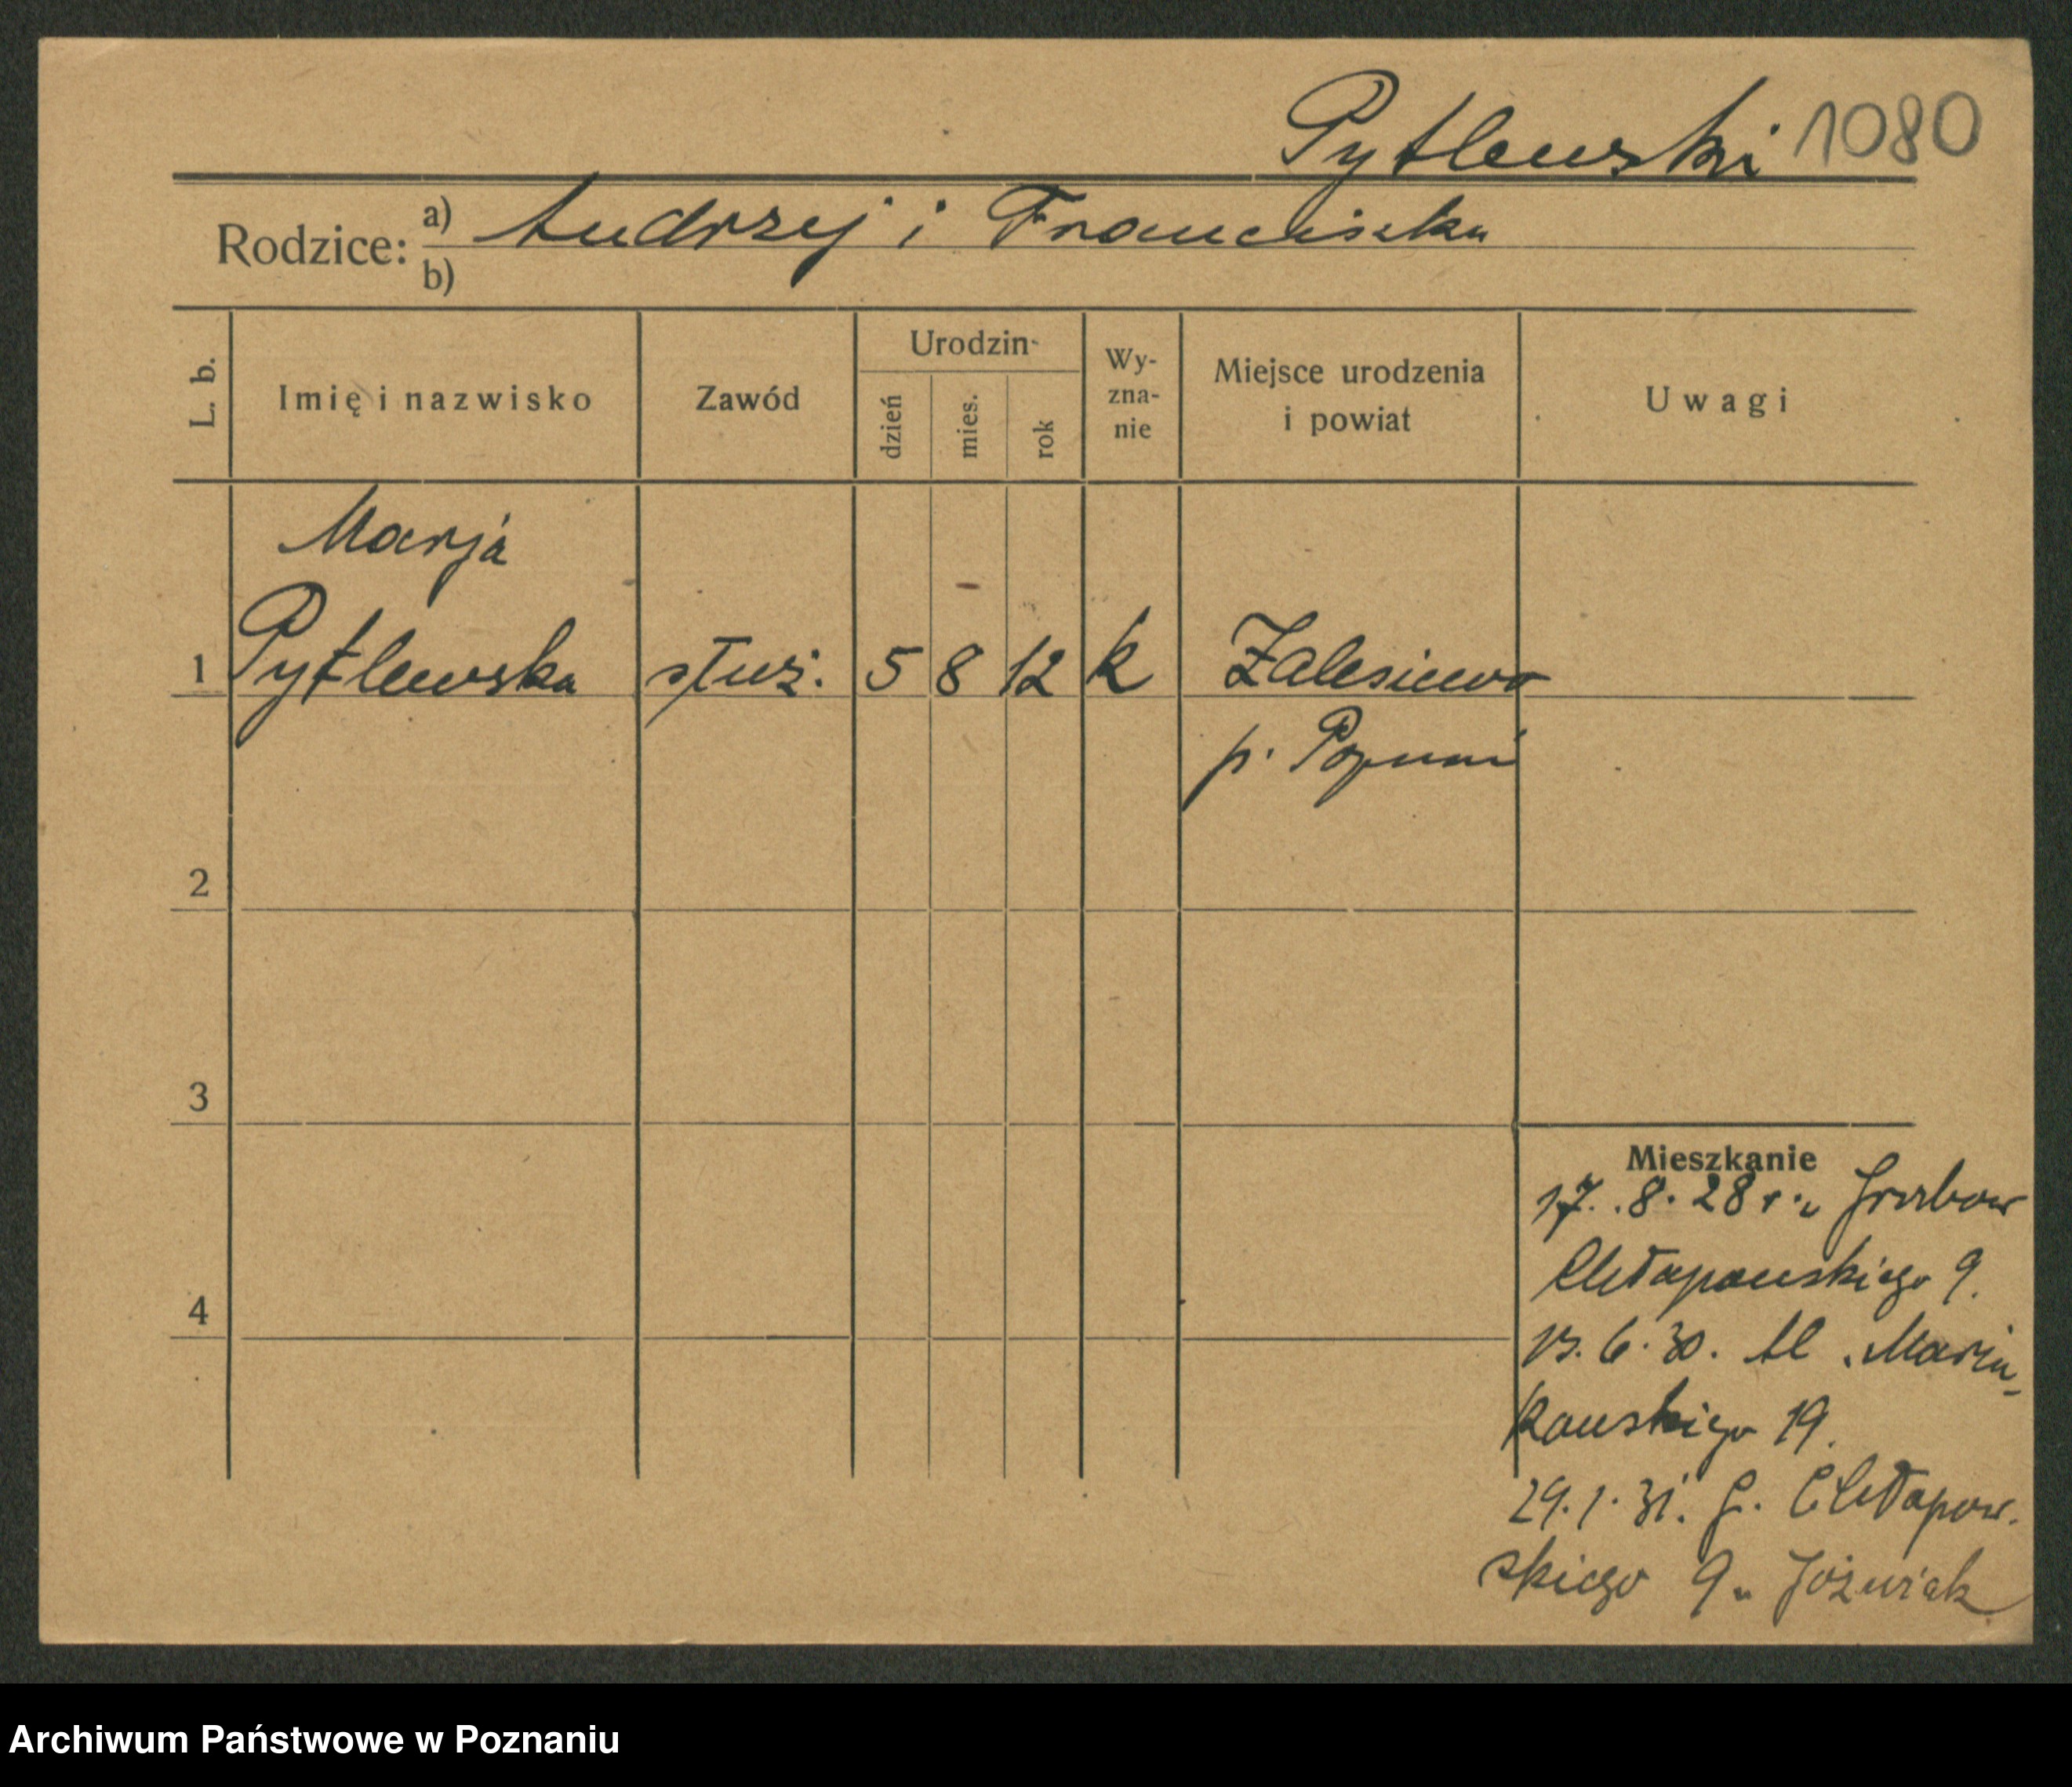 Pytlewski 1080
Rodzice: a) Andrzej i Franciszka
b)
L. b. Imię i nazwisko Zawód Urodzin dzień mies. rok Wy-zna-nie Miejsce urodzenia i powiat Uwagi
Marja
1 Pytlewska służ. 5 8 12 k Zalasiewo
p. Poznań
2
3
Mieszkanie
17. 8. 28 r.
Chłapowskiego 9.
4
6. 30. Al. Marcin-
kowskiego 19.
29. 1. 31. G. Chłapow-
skiego 9 u Jóżwiak
Archiwum Państwowe w Poznaniu